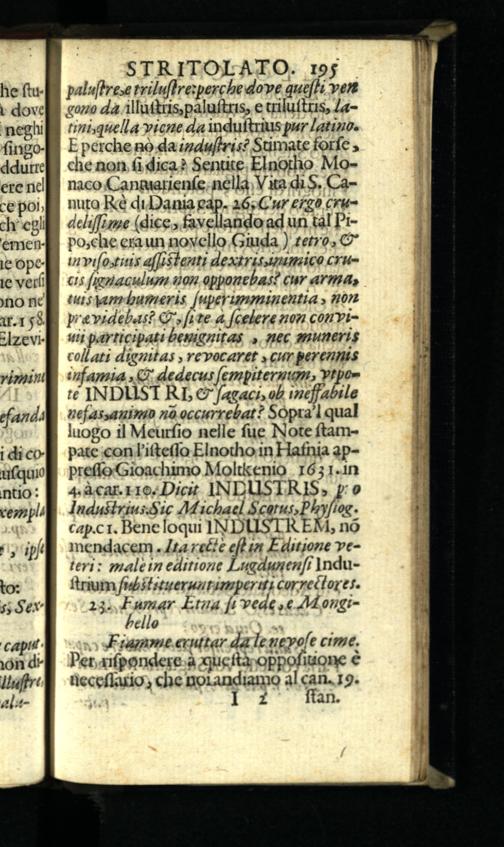 STRITOLATO. 195
palustre, e trilustre: perche dove questi ven
gono da illustris, palustris, e trilustris, la-
tini, quella viene da industrius pur latino.
E perche nò da industris? Stimate forse,
che non si dica? Sentite Elnotho Mo-
naco Cantuariense nella Vita di S. Ca-
nuto Rè di Dania cap. 26. Cur ergo cru-
delissime (dice, favellando ad un tal Pi-
po, che era un novello Giuda) tetro, &
inviso, tuis assistenti dextris, inimico cru-
cis signaculum non opponebas? cur arma,
tuis iam humeris superimminentia, non
prævidebas? &, si te a scelere non convi-
vii participati benignitas, nec muneris
collati dignitas, revocaret, cur perennis
infamia, & dedecus sempiternum, vtpo-
te INDUSTRI, & sagaci, ob ineffabile
nefas, animo nō occurrebat? Sopra'l qual
luogo il Meursio nelle sue Note stam-
pate con l'istesso Elnotho in Hafnia ap-
presso Gioachimo Moltkenio 1631. in
4. à car. 110. Dicit INDUSTRIS, pro
Industrius. Sic Michael Scotus, Physiog.
cap. CI. Bene loqui INDUSTREM, nō
mendacem. Ita rectè est in Editione ve-
teri: male in editione Lugdunensi Indu-
strium substituerunt imperiti correctores.
23. Fumar Etna si vede, e Mongi-
bello
Fiamme eruttar da le nevose cime.
Per rispondere à questa oppositione è
necessario, che noi andiamo al can. 19.
I 2 stan.
he stu-
dove
neghi
singo-
ddurre
ere nel
ce poi,
ch' egli
emen-
ue ope-
ue versi
ono ne'
ar. 158.
Elzevi-
rimini
efanda
i di co-
uusquio
antio:
xempla
, ipse
to:
s, Sex-
caput.
non di-
illustre
alu-